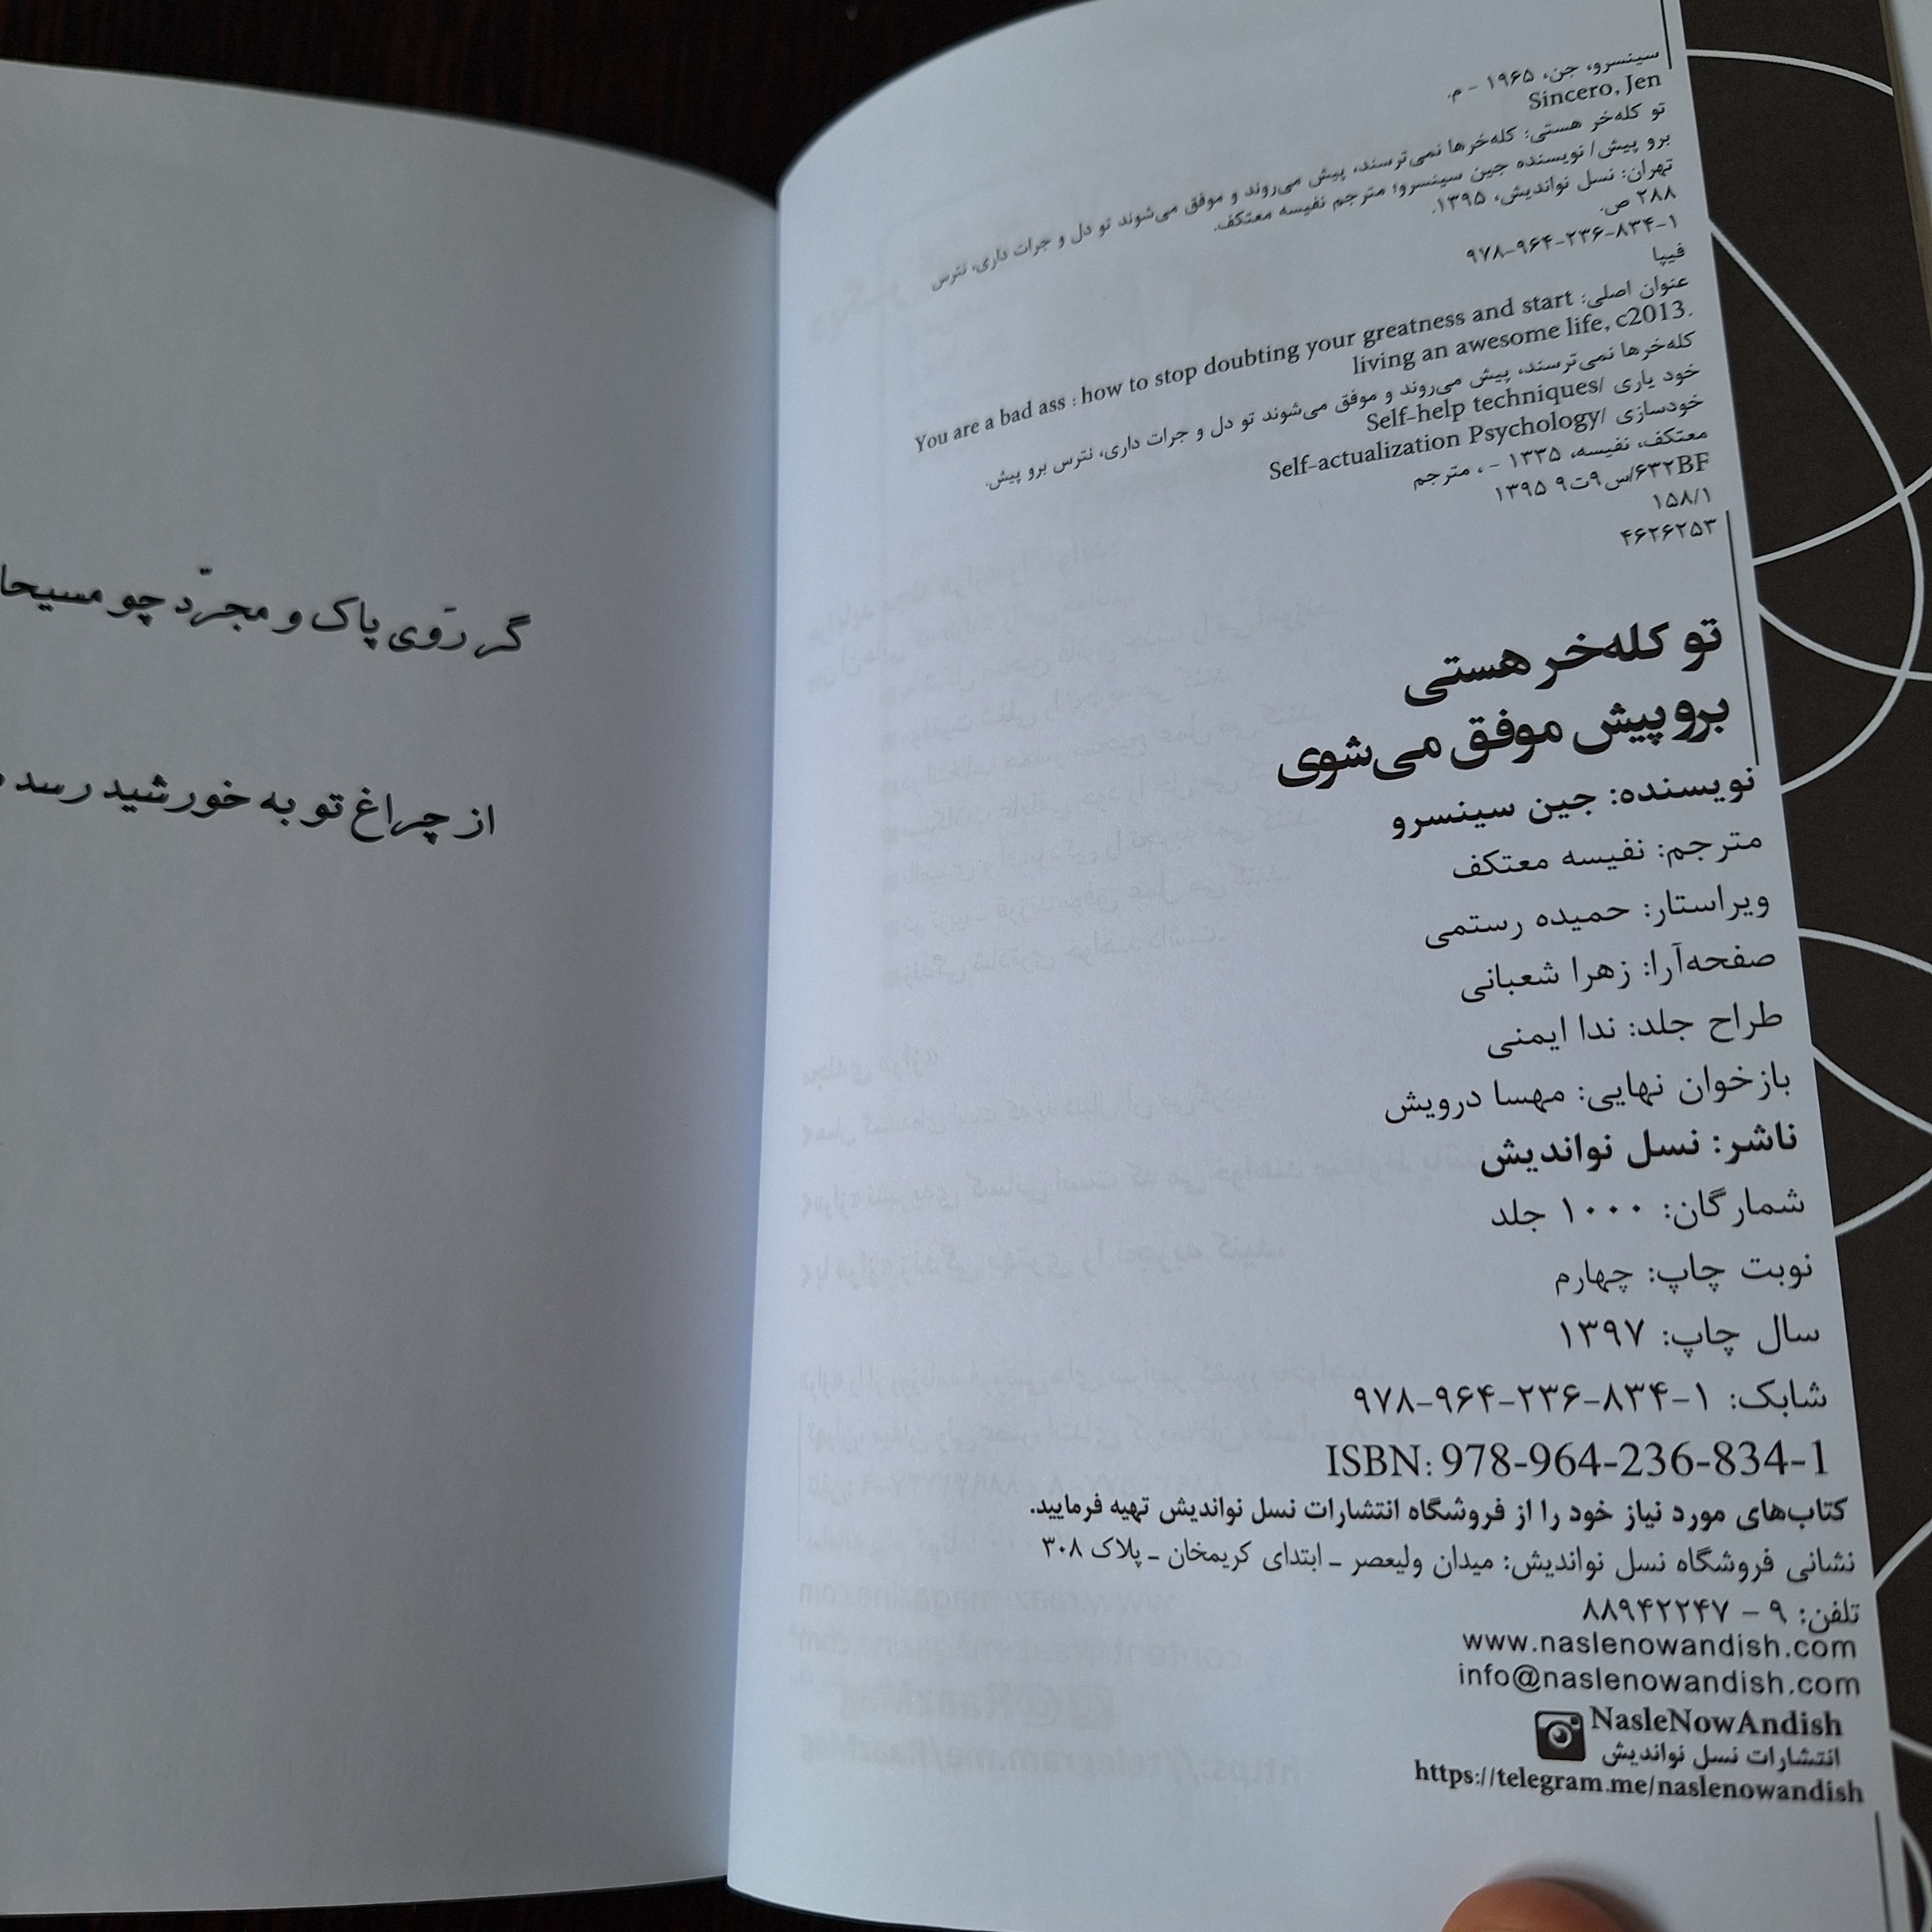 سینسرو، جن، ۱۹۶۵ - م.
Sincero, Jen
تو کله‌خر هستی: کله‌خرها نمی‌ترسند، پیش می‌روند و موفق می‌شوند تو دل و جرات داری، نترس
برو پیش/ نویسنده جین سینسرو؛ مترجم نفیسه معتکف.
تهران: نسل نواندیش، ۱۳۹۵.
۲۸۸ ص.
۹۷۸-۹۶۴-۲۳۶-۸۳۴-۱
فیپا
عنوان اصلی: You are a bad ass : how to stop doubting your greatness and start
living an awesome life, c2013.
کله‌خرها نمی‌ترسند، پیش می‌روند و موفق می‌شوند تو دل و جرات داری، نترس برو پیش.
خود یاری /Self-help techniques
خودسازی /Self-actualization Psychology
معتکف، نفیسه، ۱۳۳۵ - ، مترجم
۶۳۲BF/س۹ت۹ ۱۳۹۵
۱۵۸/۱
۴۶۲۶۲۵۳
تو کله‌خر هستی
برو پیش موفق می‌شوی
نویسنده: جین سینسرو
مترجم: نفیسه معتکف
ویراستار: حمیده رستمی
صفحه‌آرا: زهرا شعبانی
طراح جلد: ندا ایمنی
بازخوان نهایی: مهسا درویش
ناشر: نسل نواندیش
شمارگان: ۱۰۰۰ جلد
نوبت چاپ: چهارم
سال چاپ: ۱۳۹۷
شابک: ۱-۸۳۴-۲۳۶-۹۶۴-۹۷۸
ISBN: 978-964-236-834-1
کتاب‌های مورد نیاز خود را از فروشگاه انتشارات نسل نواندیش تهیه فرمایید.
نشانی فروشگاه نسل نواندیش: میدان ولیعصر ـ ابتدای کریمخان ـ پلاک ۳۰۸
تلفن: ۹ - ۸۸۹۴۲۲۴۷
www.naslenowandish.com
info@naslenowandish.com
NasleNowAndish
انتشارات نسل نواندیش
https://telegram.me/naslenowandish
گر روَی پاک و مجرّد چو مسیحا
از چراغ تو به خورشید رسد